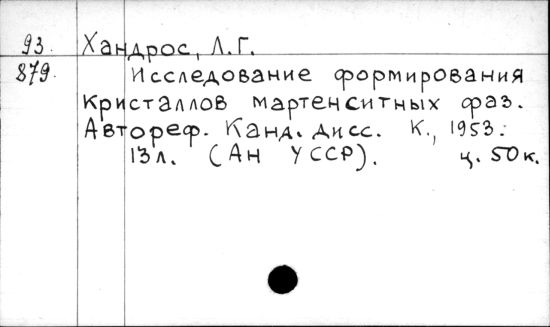 93. Хандрос, Л.Г.
879. Исследование формирования
кристаллов мартенситных фаз.
Автореф. Канд. дисс. К., 1953.
13л. (Ан УССР). ц. 50к.